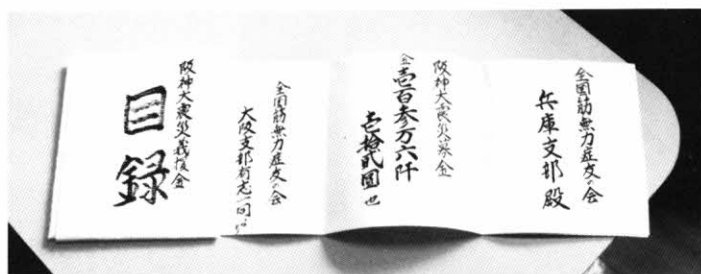 全国筋無力症友の会
兵庫支部殿
阪神大震災募金
金壱百参万六阡
壱拾弐圓也
全国筋無力症友の会
大阪支部有志一同
阪神大震災義援金
目録